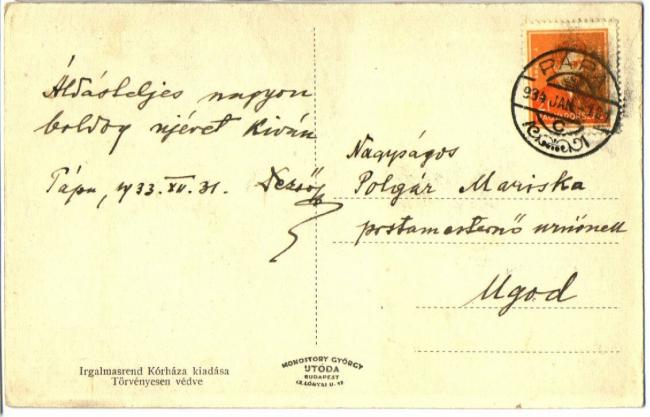 Áldásteljes nagyon
boldog újévet kíván
Tápa, 1933. XII. 31. Dezső
Nagyságos
Polgár Mariska
postamesternő úrnőnek
Ugod
PÁP
934 JAN
Irgalmasrend Kórháza kiadása
Törvényesen védve
MONOSTORY GYÖRGY
UTÓDA
BUDAPEST
IX. LÓNYAI U.